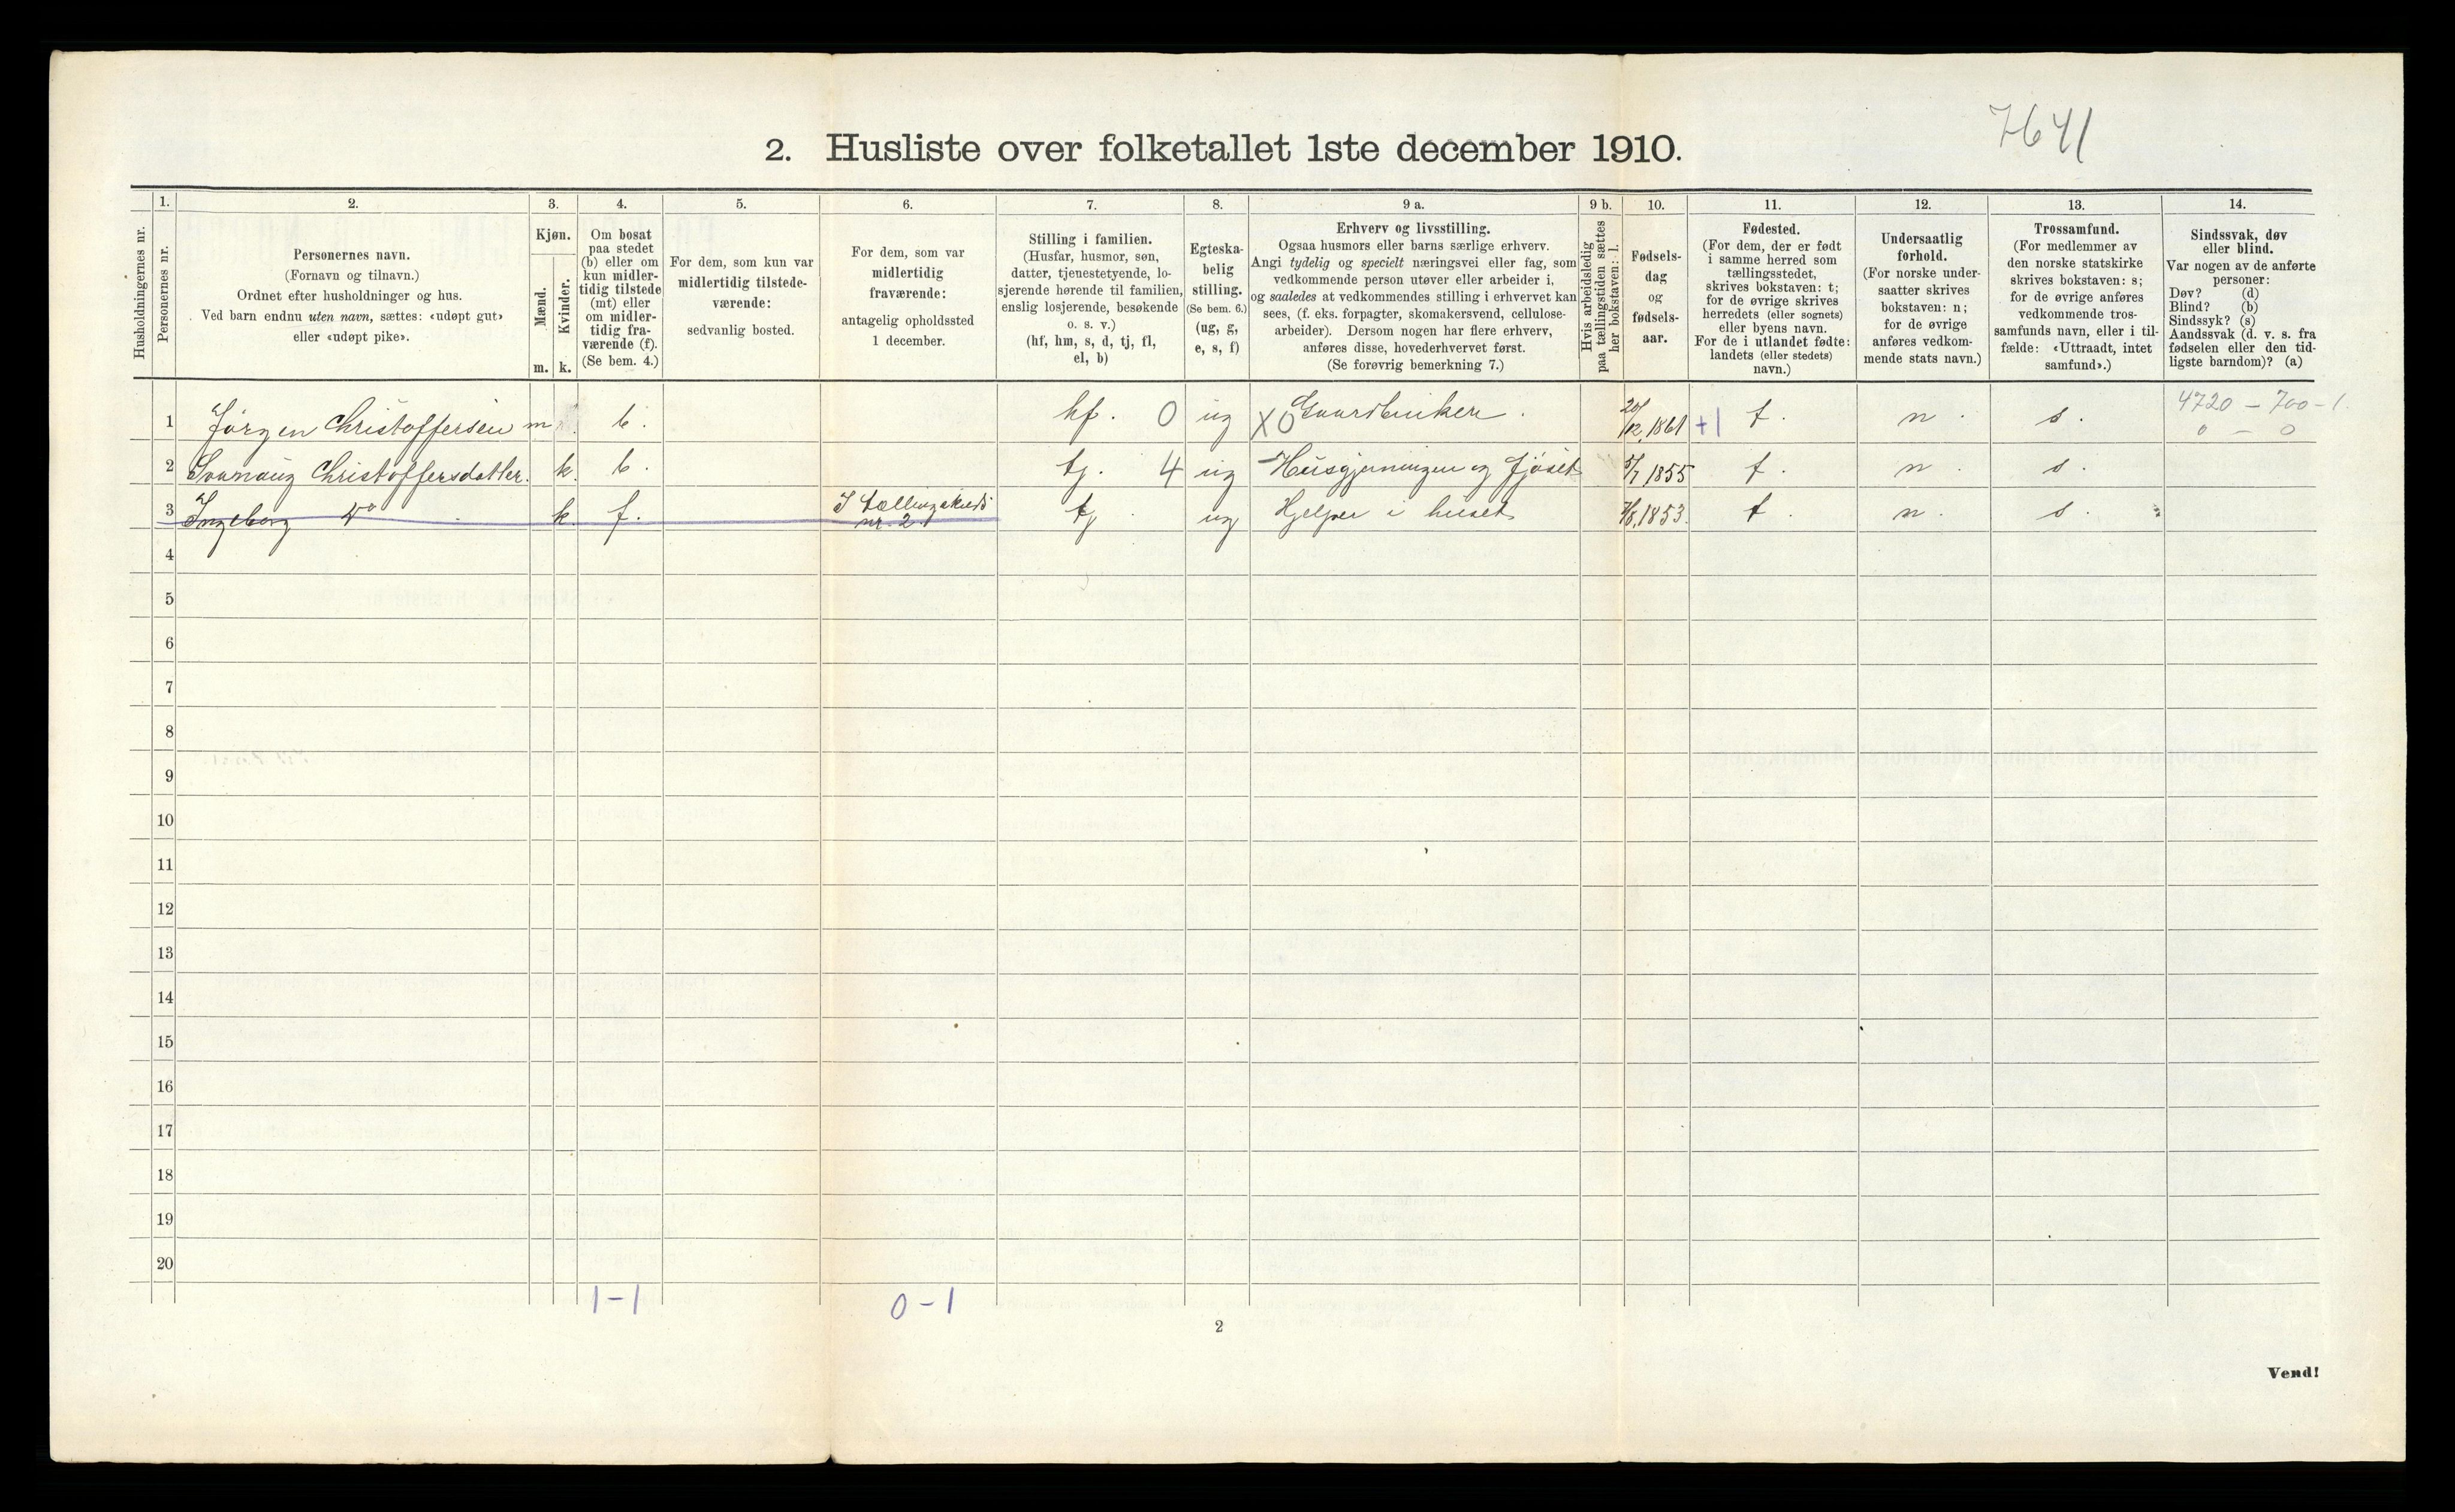 7641
2. Husliste over folketallet 1ste december 1910.
Husholdningernes nr.
1.
Personernes nr.
2.
Personernes navn.
(Fornavn og tilnavn.)
Ordnet efter husholdninger og hus.
Ved barn endnu uten navn, sættes: «udøpt gut»
eller «udøpt pike».
3.
Kjøn.
Mænd.
Kvinder.
m. k.
4.
Om bosat
paa stedet
(b) eller om
kun midler-
tidig tilstede
(mt) eller
om midler-
tidig fra-
værende (f).
(Se bem. 4.)
5.
For dem, som kun var
midlertidig tilstede-
værende:
sedvanlig bosted.
6.
For dem, som var
midlertidig
fraværende:
antagelig opholdssted
1 december.
7.
Stilling i familien.
(Husfar, husmor, søn,
datter, tjenestetyende, lo-
sjerende hørende til familien,
enslig losjerende, besøkende
o. s. v.)
(hf, hm, s, d, tj, fl,
el, b)
8.
Egteska-
belig
stilling.
(Se bem. 6.)
(ug, g,
e, s, f)
9 a.
Erhverv og livsstilling.
Ogsaa husmors eller barns særlige erhverv.
Angi tydelig og specielt næringsvei eller fag, som
vedkommende person utøver eller arbeider i,
og saaledes at vedkommendes stilling i erhvervet kan
sees, (f. eks. forpagter, skomakersvend, cellulose-
arbeider). Dersom nogen har flere erhverv,
anføres disse, hovederhvervet først.
(Se forøvrig bemerkning 7.)
9 b.
Hvis arbeidsledig
paa tællingstiden sættes
her bokstaven: l.
10.
Fødsels-
dag
og
fødsels-
aar.
11.
Fødested.
(For dem, der er født
i samme herred som
tællingsstedet,
skrives bokstaven: t;
for de øvrige skrives
herredets (eller sognets)
eller byens navn.
For de i utlandet fødte:
landets (eller stedets)
navn.)
12.
Undersaatlig
forhold.
(For norske under-
saatter skrives
bokstaven: n;
for de øvrige
anføres vedkom-
mende stats navn.)
13.
Trossamfund.
(For medlemmer av
den norske statskirke
skrives bokstaven: s;
for de øvrige anføres
vedkommende tros-
samfunds navn, eller i til-
fælde: «Uttraadt, intet
samfund».)
14.
Sindssvak, døv
eller blind.
Var nogen av de anførte
personer:
Døv? (d)
Blind? (b)
Sindssyk? (s)
Aandssvak (d. v. s. fra
fødselen eller den tid-
ligste barndom)? (a)
1 Jørgen Christoffersen m b. hf. 0 ug X0 Gaardbruker. 20/12 1861 +1 t. n. s. 4720 - 700 - 1.
0 - 0
2 Christoffersdatter. k. b. tj. 4 ug - Husgjerningen og Fjøset 5/7 1855 t. n. s.
3 Ingeborg do k. f. I Tællingskreds nr. 2. tj ug Hjelper i huset 7/8 1853. t. n. s.
4
5
6
7
8
9
10
11
12
13
14
15
16
17
18
19
20
1-1 0-1
2
Vend!